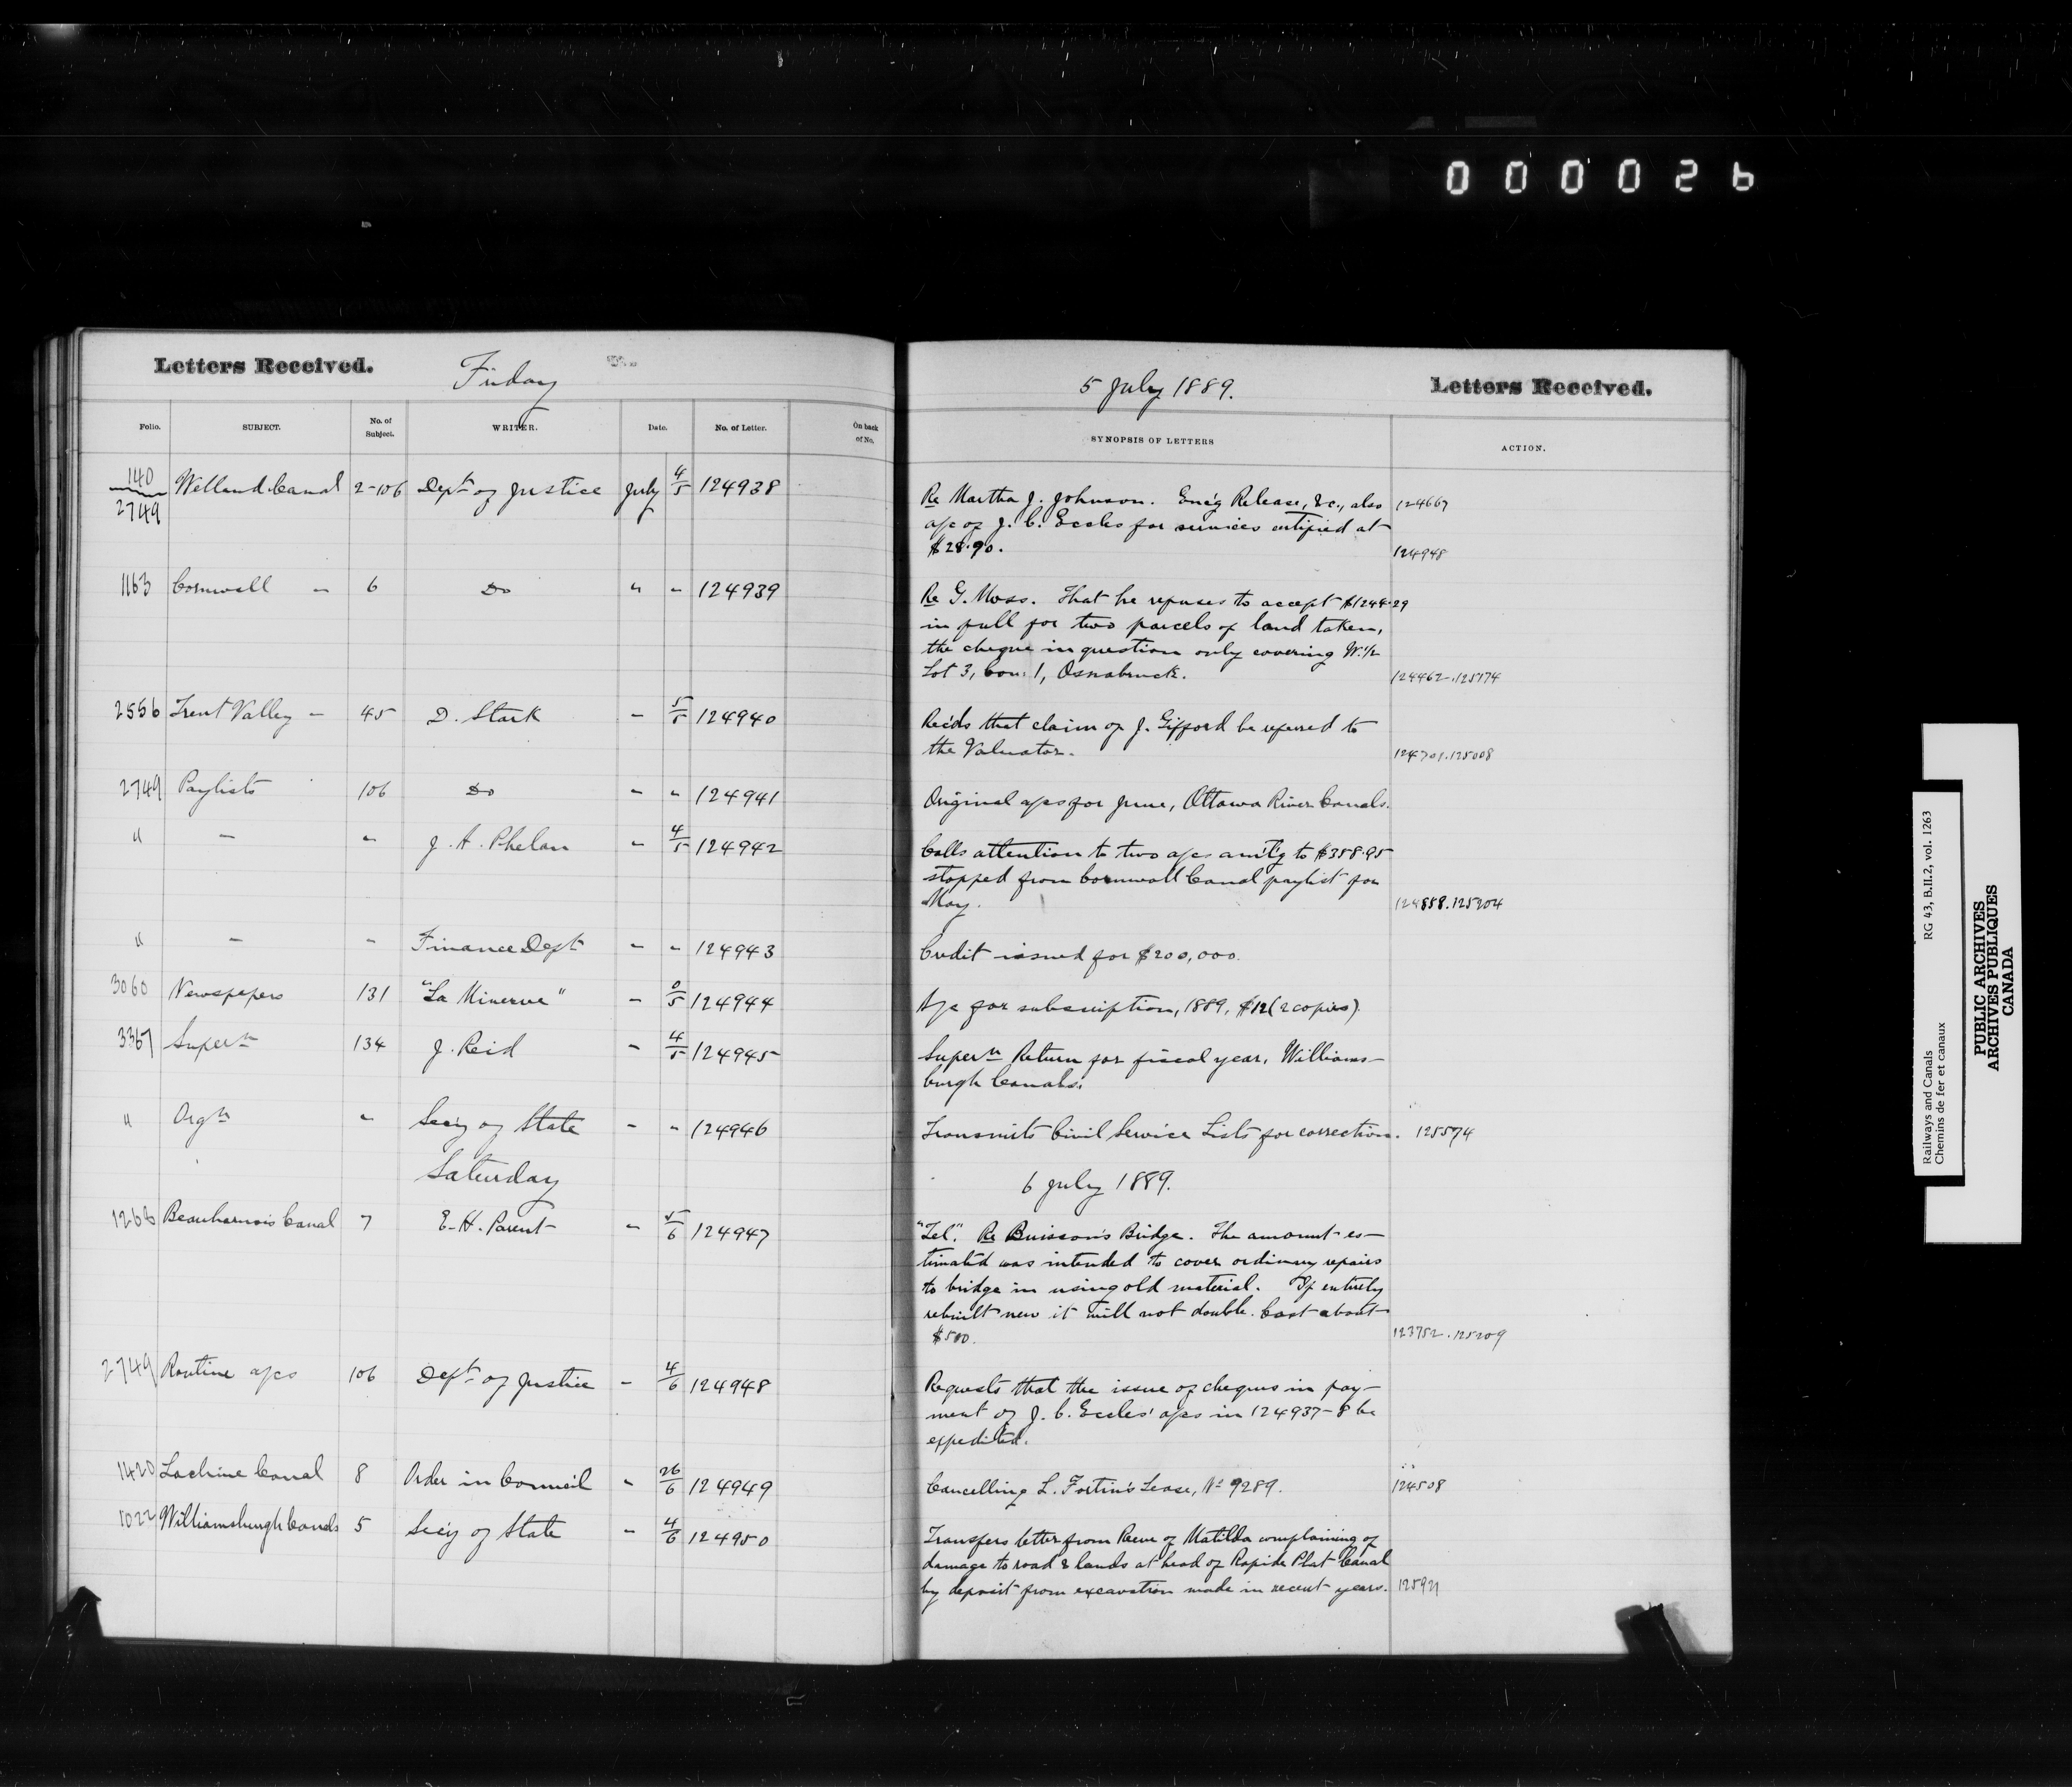 000026
Letters Received.
Friday
5 July 1889.
Letters Received.
Folio. SUBJECT. No. of Subject. WRITER. Date. No. of Letter. On back of No. SYNOPSIS OF LETTERS ACTION.
140
2749 Welland Canal 2-106 Dept of Justice July 4/5 124938
Re Martha J. Johnson. Enc'g Release, &c., also 124667
a/c of J. C. Eccles for services certified at
$28.90. 124948
1163 Cornwall " 6 Do " " 124939
Re G. Moss. That he refuses to accept $1244.29
in full for two parcels of land taken,
the cheque in question only covering W. 1/2
Lot 3, Con. 1, Osnabruck. 124462.125174
2556 Trent Valley " 45 D. Stark " 5/5 124940
Rec'ds that claim of J. Gifford be referred to
the Valuator. 124701.125008
2749 Paylists 106 Do " " 124941
Original a/cs for June, Ottawa River Canals.
" " " J. A. Phelan " 4/5 124942
Calls attention to two a/cs am't'g to $358.95
stopped from Cornwall Canal paylist for
May. 124858.125204
" " " Finance Dept " " 124943
Credit issued for $200,000.
3060 Newspapers 131 "La Minerve" " 0/5 124944
A/c for subscription, 1889, $12 (2 copies).
3367 Supern 134 J. Reid " 4/5 124945
Supern Return for fiscal year, Williams-
burgh Canals.
" Orgn " Sec'y of State " " 124946
Transmits Civil Service Lists for correction. 125574
Saturday
6 July 1889.
1263 Beauharnois Canal 7 E. H. Parent " 5/6 124947
"Tel". Re Buisson's Bridge. The amount es-
timated was intended to cover ordinary repairs
to bridge in using old material. If entirely
rebuilt new it will not double. Cost about
$500. 123752.125209
2749 Routine a/cs 106 Dept of Justice " 4/6 124948
Requests that the issue of cheques in pay-
ment of J. C. Eccles' a/cs in 124937-8 be
expedited.
1420 Lachine Canal 8 Order in Council " 26/6 124949
Cancelling L. Fortin's Lease, No 9289. 124508
1022 Williamsburgh Canals 5 Sec'y of State " 4/6 124950
Transfers letter from Reeve of Matilda complaining of
damage to road & lands at head of Rapide Plat Canal
by deposit from excavation made in recent years. 125921
Railways and Canals RG 43, B.II.2, vol. 1263
Chemins de fer et canaux
PUBLIC ARCHIVES
ARCHIVES PUBLIQUES
CANADA